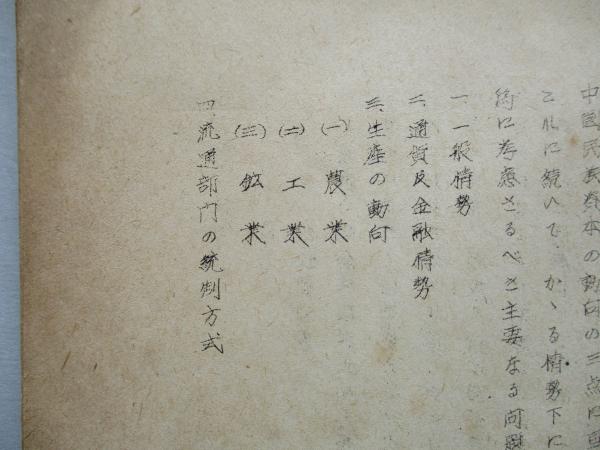 中国民族資本の動向の三点に重
之れに続いて、かゝる情勢下に
済に考慮さるべき主要なる問題
一、一般情勢
二、通貨及金融情勢
三、生産の動向
(一) 農業
(二) 工業
(三) 鉱業
四、流通部門の統制方式